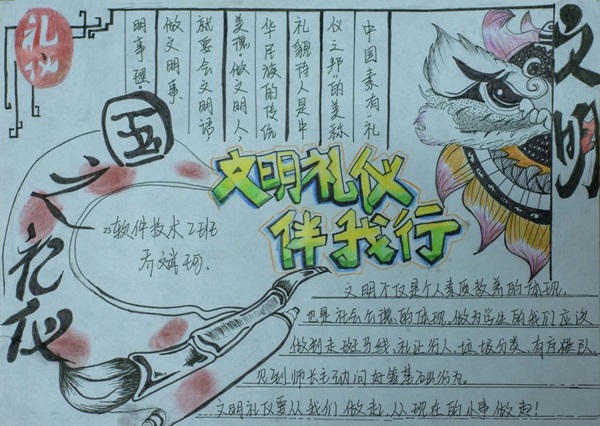 礼仪
中国素有“礼
仪之邦”的美称
礼貌待人是中
华民族的传统
美德。做文明人,
就要会文明语,
做文明事,
明事理。
文明
国之礼仪
文明礼仪
伴我行
软件技术2班
文明不仅是个人素质教养的体现,
也是社会公德的体现,做为学生的我们应该
做到走斑马线,礼让行人,垃圾分类,有序排队,
见到师长主动问好等基础行为。
文明礼仪要从我们做起,从现在的小事做起!